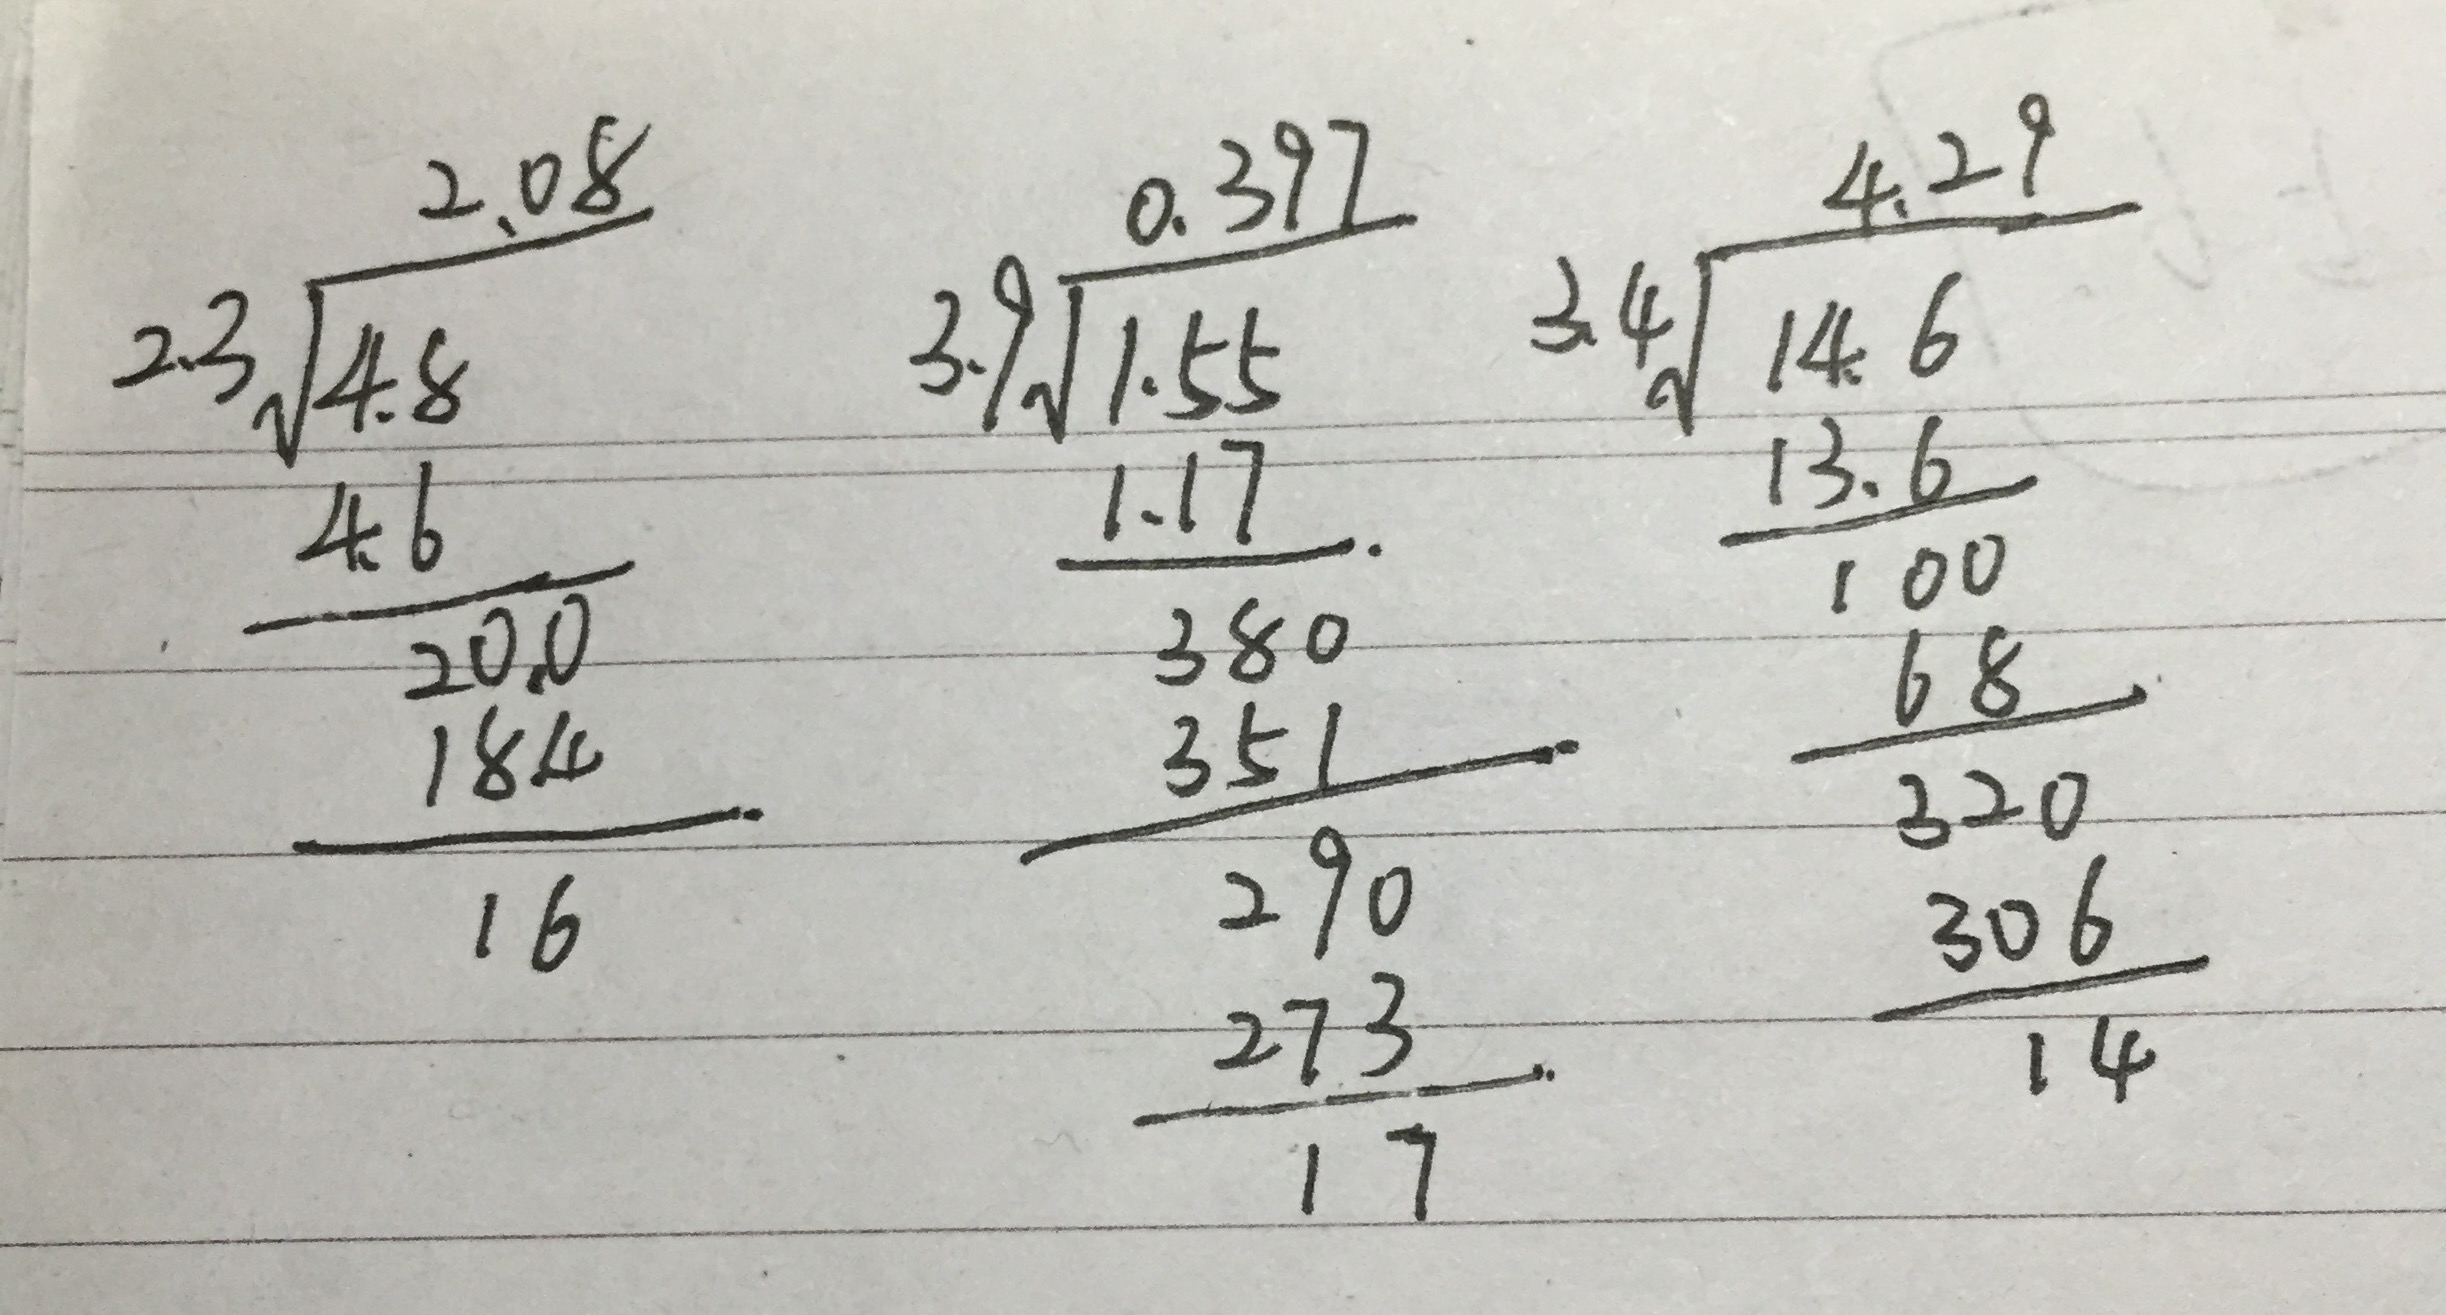 2.08
2.3√4.8
4.6
20.0
184
16
0.397
3.9√1.55
1.17
380
351
290
273
17
4.29
3.4√14.6
13.6
100
68
320
306
14